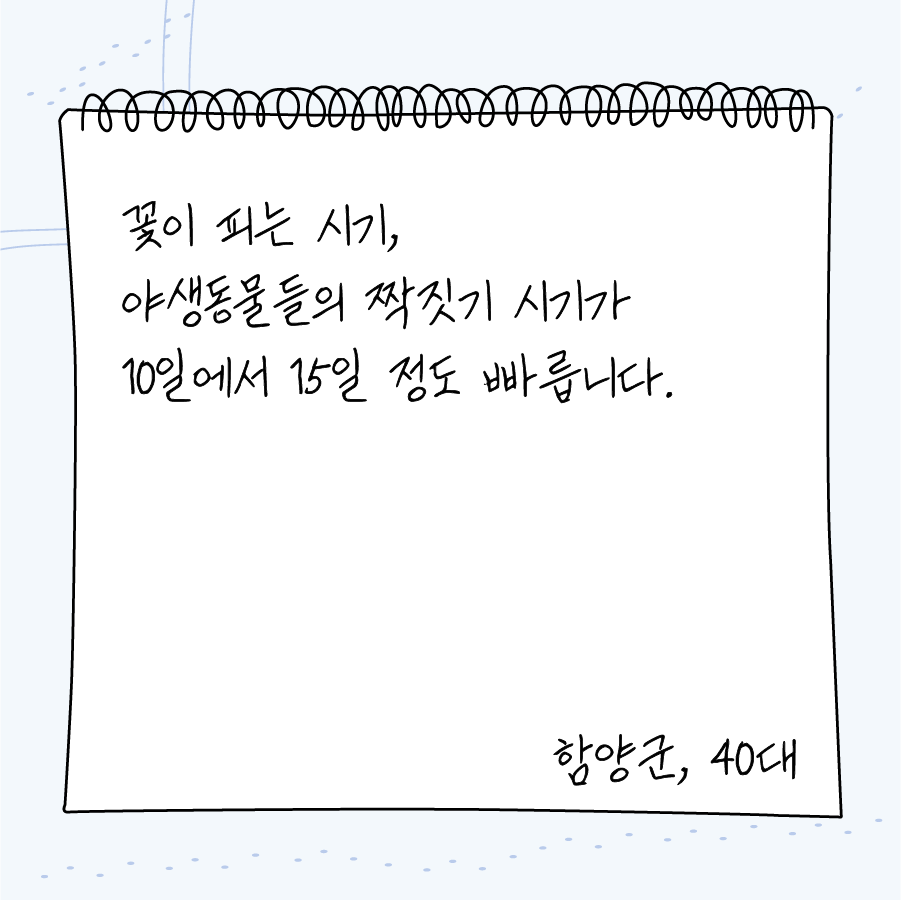 꽃이 피는 시기,
야생동물들의 짝짓기 시기가
10일에서 15일 정도 빠릅니다.
함양군, 40대